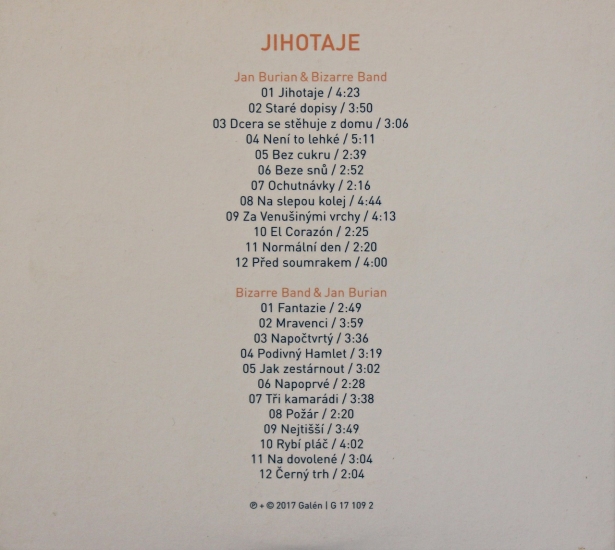 JIHOTAJE
Jan Burian & Bizarre Band
01 Jihotaje / 4:23
02 Staré dopisy / 3:50
03 Dcera se stěhuje z domu / 3:06
04 Není to lehké / 5:11
05 Bez cukru / 2:39
06 Beze snů / 2:52
07 Ochutnávky / 2:16
08 Na slepou kolej / 4:44
09 Za Venušinými vrchy / 4:13
10 El Corazón / 2:25
11 Normální den / 2:20
12 Před soumrakem / 4:00
Bizarre Band & Jan Burian
01 Fantazie / 2:49
02 Mravenci / 3:59
03 Napočtvrtý / 3:36
04 Podivný Hamlet / 3:19
05 Jak zestárnout / 3:02
06 Napoprvé / 2:28
07 Tři kamarádi / 3:38
08 Požár / 2:20
09 Nejtišší / 3:49
10 Rybí pláč / 4:02
11 Na dovolené / 3:04
12 Černý trh / 2:04
℗ + © 2017 Galén | G 17 109 2